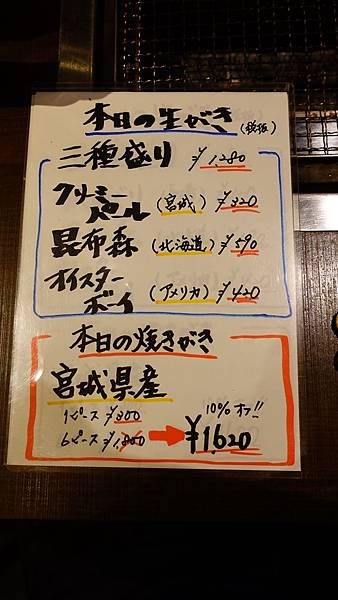 本日の生がき(税抜)
三種盛り ¥1,280
クリーミー
パール (宮城) ¥320
昆布森 (北海道) ¥590
オイスター
ボーイ (アメリカ) ¥420
本日の焼きがき
宮城県産
1ピース ¥300 10%オフ!!
6ピース ¥1,800 → ¥1,620